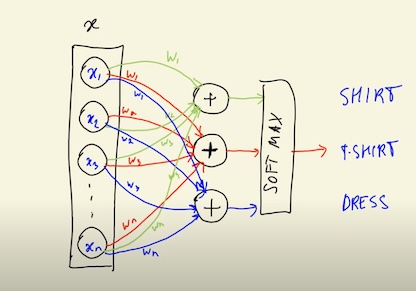 x
x1
x2
x3
xn
w1
w1
w1
w2
w2
w2
w3
w3
w3
wn
wn
wn
+
+
+
SOFT MAX
SHIRT
T-SHIRT
DRESS